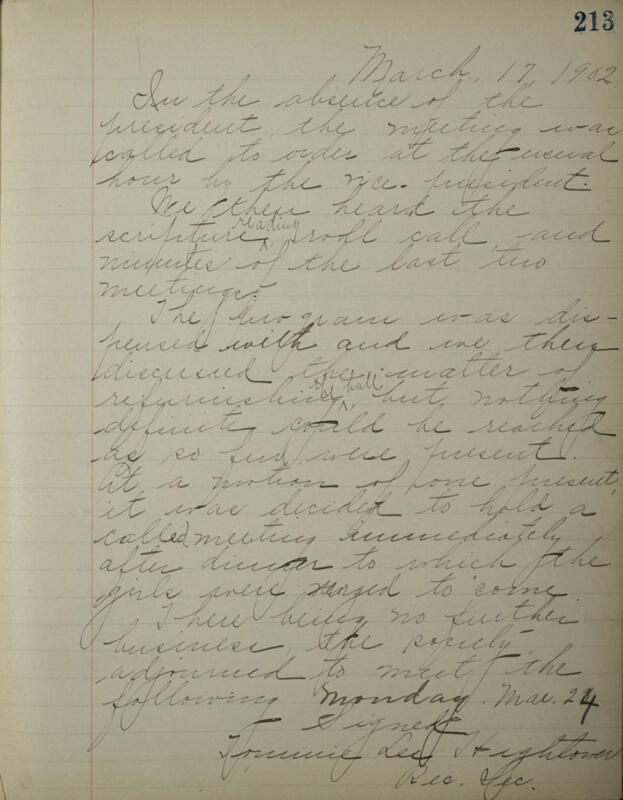 213
March, 17, 1902
In the absence of the
president the meeting was
called to order at the usual
hour by the vice-president.
We then heard the
scripture reading, roll call and
minutes of the last two
meetings.
The program was dis-
pensed with and we then
discussed the matter of
refurnishing the hall, but nothing
definite could be reached
as so few were present.
At a motion of one present,
it was decided to hold a
called meeting immediately
after dinner to which the
girls were urged to come.
There being no further
business, the society
adjourned to meet the
following Monday. Mar. 24
Signed
Tommie Lee Hightower
Rec. Sec.